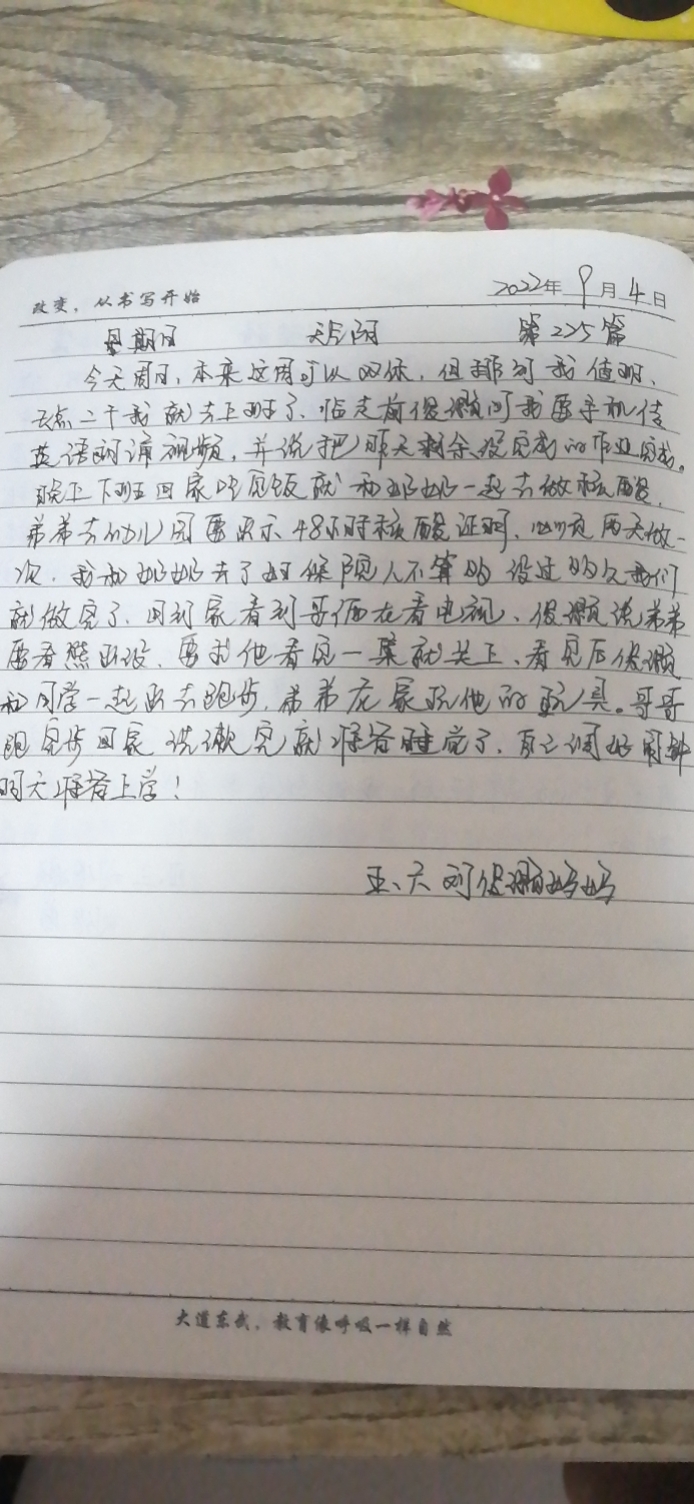 改变，从书写开始
2022年9月4日
星期日 天气阴 第225篇
今天周日，本来这周可以双休，但排到我值班，
点二十我就去上班了，临走前俊灏问我要手机传
英语朗诵视频，并说把昨天剩余没完成的作业完成。
晚上下班回家吃完饭就和奶奶一起去做核酸，
弟弟去幼儿园要出示48小时核酸证明，必须两天做一
次，我和奶奶去了时候队人不算多没过多久我们
就做完了，回到家看到哥俩在看电视，俊灏说弟弟
要看熊出没，要求他看完一集就关上，看完后俊灏
和同学一起出去跑步，弟弟在家玩他的玩具。哥哥
跑完步回家洗漱完就准备睡觉了，自己调好闹钟
明天准备上学！
五、六 刘俊灏妈妈
大道东武，教育像呼吸一样自然